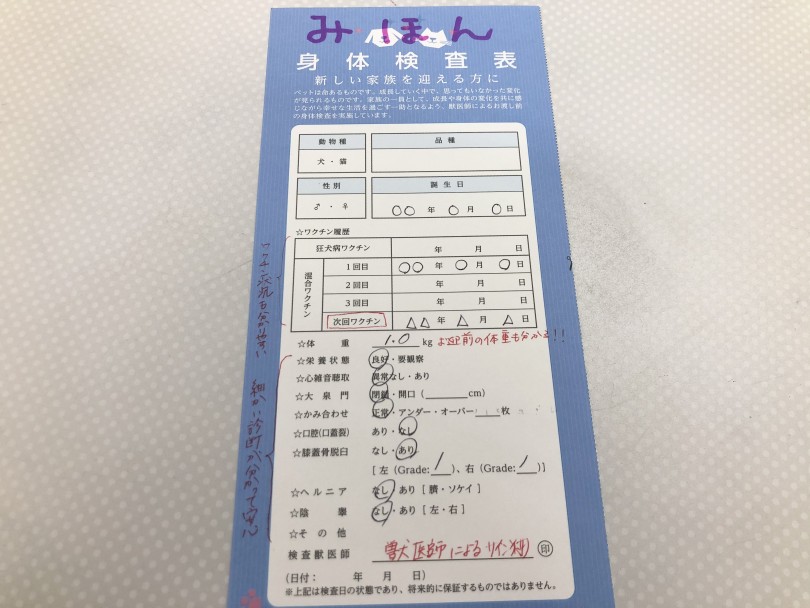 みほん
身体検査表
新しい家族を迎える方に
ペットは命あるものです。成長していく中で、思ってもいなかった変化
が見られるものです。家族の一員として、成長や身体の変化を共に感
じながら幸せな生活を過ごす一助となるよう、獣医師によるお渡し前
の身体検査を実施しています。
動物種 品種
犬・猫
性別 誕生日
♂・♀ ○○年○月○日
☆ワクチン履歴
狂犬病ワクチン 年 月 日
混合ワクチン
1回目 ○○年○月○日
2回目 年 月 日
3回目 年 月 日
次回ワクチン △△年△月△日
☆体重 1.0 kg お迎前の体重も分かる!!
☆栄養状態 良好・要観察
☆心雑音聴取 異常なし・あり
☆大泉門 閉鎖・開口(______cm)
☆かみ合わせ 正常・アンダー・オーバー____枚
☆口腔(口蓋裂) あり・なし
☆膝蓋骨脱臼 なし・あり
[左(Grade: 1 )、右(Grade: 1 )]
☆ヘルニア なし・あり[臍・ソケイ]
☆陰睾 なし・あり[左・右]
☆その他
検査獣医師 獣医師によるサイン 印
(日付: 年 月 日)
※上記は検査日の状態であり、将来的に保証するものではありません。
ワクチン状況も分かりやすい
細かい診断が分かって安心